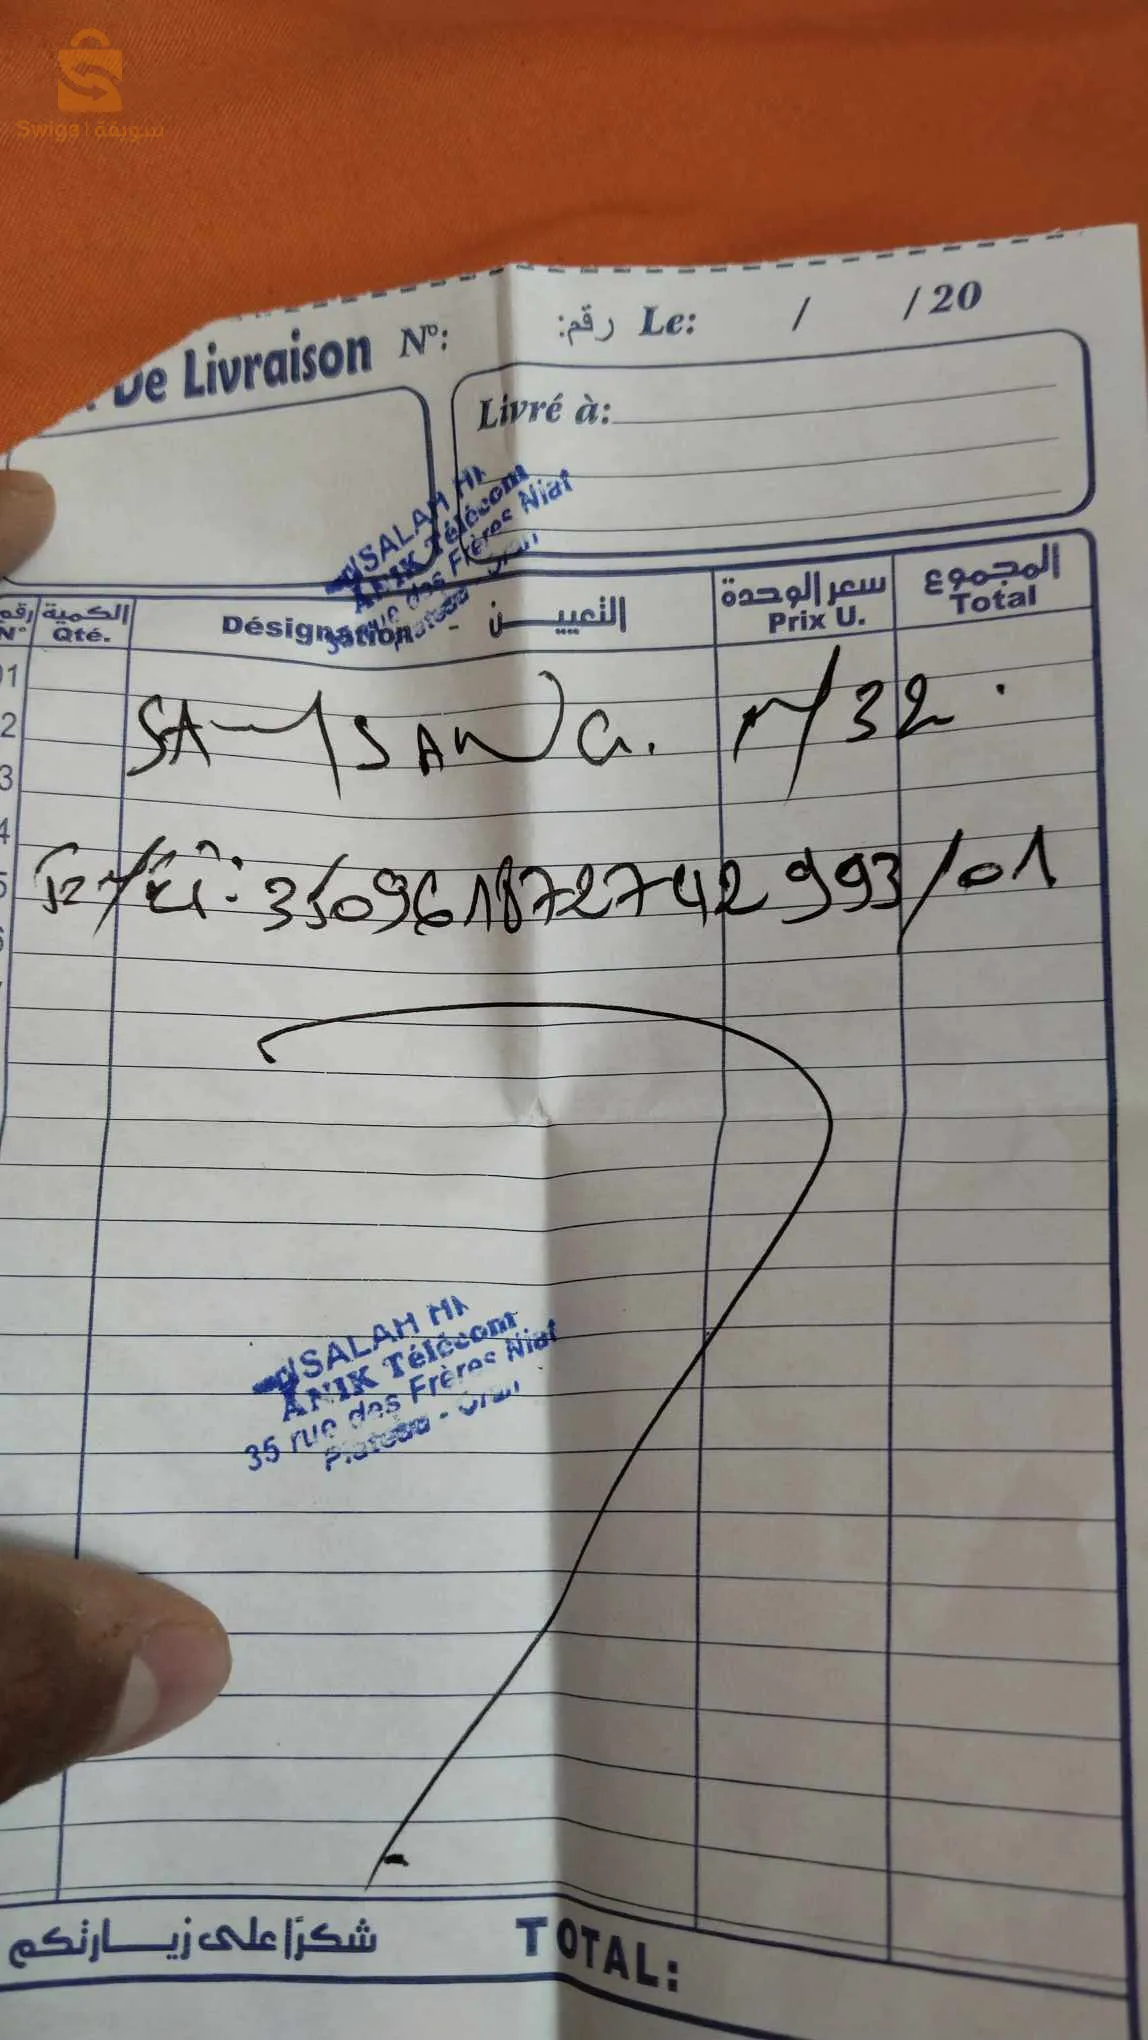 Swiga | سويقة
De Livraison N°: رقم: Le: / / 20
Livré à:
SALAH
ANIK Télécom
35 rue des Frères Niat
Plateau - Oran
رقم الكمية التعييـــن سعر الوحدة المجموع
N° Qté. Désignation - Prix U. Total
01
2
3
4
5
6
SAMSANG. M32.
IMEI: 350961872742993/01
SALAH
ANIK Télécom
35 rue des Frères Niat
Plateau - Oran
شكرًا على زيـــارتكم TOTAL: